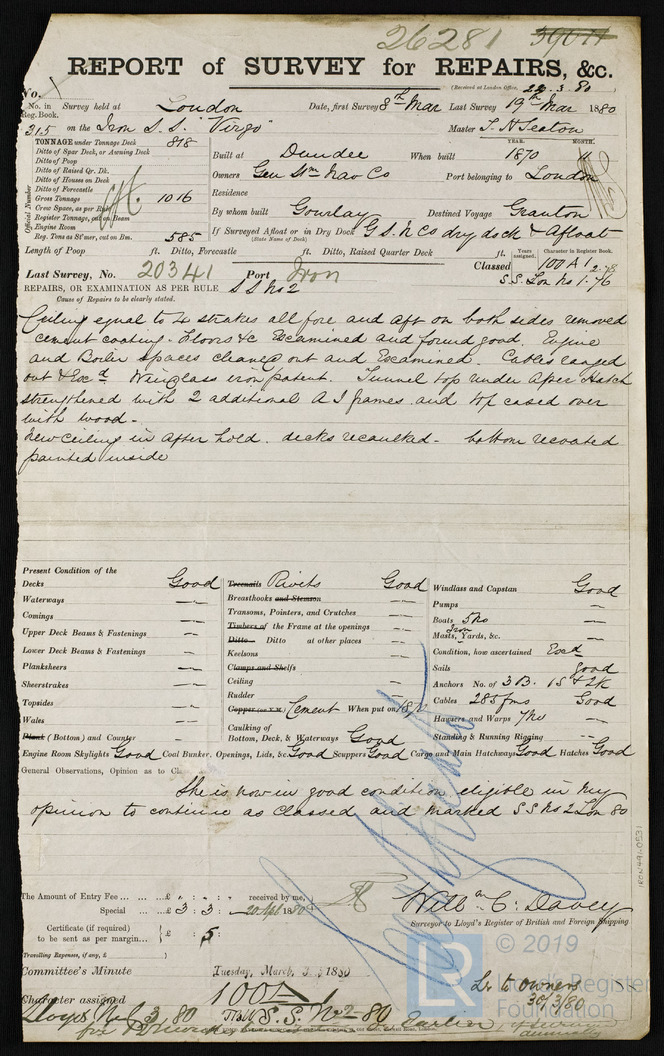 26281
REPORT of SURVEY for REPAIRS, &c.
(Received at London Office, 3.80
No.
No. in Reg. Book. Survey held at London Date, first Survey 8th Mar Last Survey 19th Mar 1880
315 on the Iron S.S. "Virgo" Master T. H Seaton
TONNAGE under Tonnage Deck 818
Ditto of Spar Deck, or Awning Deck
Ditto of Poop
Ditto of Raised Qr. Dk.
Ditto of Houses on Deck
Ditto of Forecastle
Gross Tonnage 1016
Crew Space, as per Rule
Register Tonnage, cut on Beam
Engine Room
Reg. Tons as St'mer, cut on Bm. 585
Official Number
YEAR. MONTH.
Built at Dundee When built 1870
Owners Gen Stm Nav Co Port belonging to London
Residence
By whom built Gourlay Destined Voyage Granton
If Surveyed Afloat or in Dry Dock G S N Co dry dock & Afloat
(State Name of Dock)
Length of Poop ft. Ditto, Forecastle ft. Ditto, Raised Quarter Deck ft.
Years assigned. Character in Register Book.
Last Survey, No. 20341 Port Iron Classed 100 A1 2.78
S.S. Lon No 1.76
REPAIRS, OR EXAMINATION AS PER RULE S S No 2
Cause of Repairs to be clearly stated.
Ceiling equal to 4 strakes all fore and aft on both sides removed
cement coating. Floors &c Examined and found good. Engine
and Boiler spaces cleaned out and Examined. Cables ranged
out & Exd. Windlass iron patent. Tunnel top under After Hatch
strengthened with 2 additional A I frames and top cased over
with wood.
New ceiling in after hold. decks recaulked. bottom recoated
painted inside
Present Condition of the
Decks Good
Waterways
Comings
Upper Deck Beams & Fastenings
Lower Deck Beams & Fastenings
Planksheers
Sheerstrakes
Topsides
Wales
Plank (Bottom) and Counter
Treenails Rivets Good
Breasthooks and Stemson
Transoms, Pointers, and Crutches
Timbers of the Frame at the openings
Ditto Ditto at other places
Keelsons
Clamps and Shelfs
Ceiling
Rudder
Copper (or Y.M.) Cement When put on
Caulking of
Bottom, Deck, & Waterways Good
Windlass and Capstan Good
Pumps
Boats 5 No
Iron
Masts, Yards, &c.
Condition, how ascertained Exd
Sails good
Anchors No. of 3 B. 1 S & 2 K
Cables 285 fms Good
Hawsers and Warps 7 No
Standing & Running Rigging
Engine Room Skylights Good Coal Bunker, Openings, Lids, &c. Good Scuppers Good Cargo and Main Hatchways Good Hatches Good
General Observations, Opinion as to Cl
She is now in good condition eligible in my
opinion to continue as Classed and marked S S No 2 Lon 80
The Amount of Entry Fee ... ... £ : : received by me,
Special ... ... £ 3 : 3 : 1880
Certificate (if required)
to be sent as per margin... £ : 5 :
Travelling Expenses, if any, £
Willm C. Davey
Surveyor to Lloyd's Register of British and Foreign Shipping
Committee's Minute Tuesday, March 3 , 1880
Character assigned 100 A 1
S.S. No 2 - 80
Lr to Owners
30/3/80
IRON491-0531
LR
© 2019
Lloyd's Register
Foundation